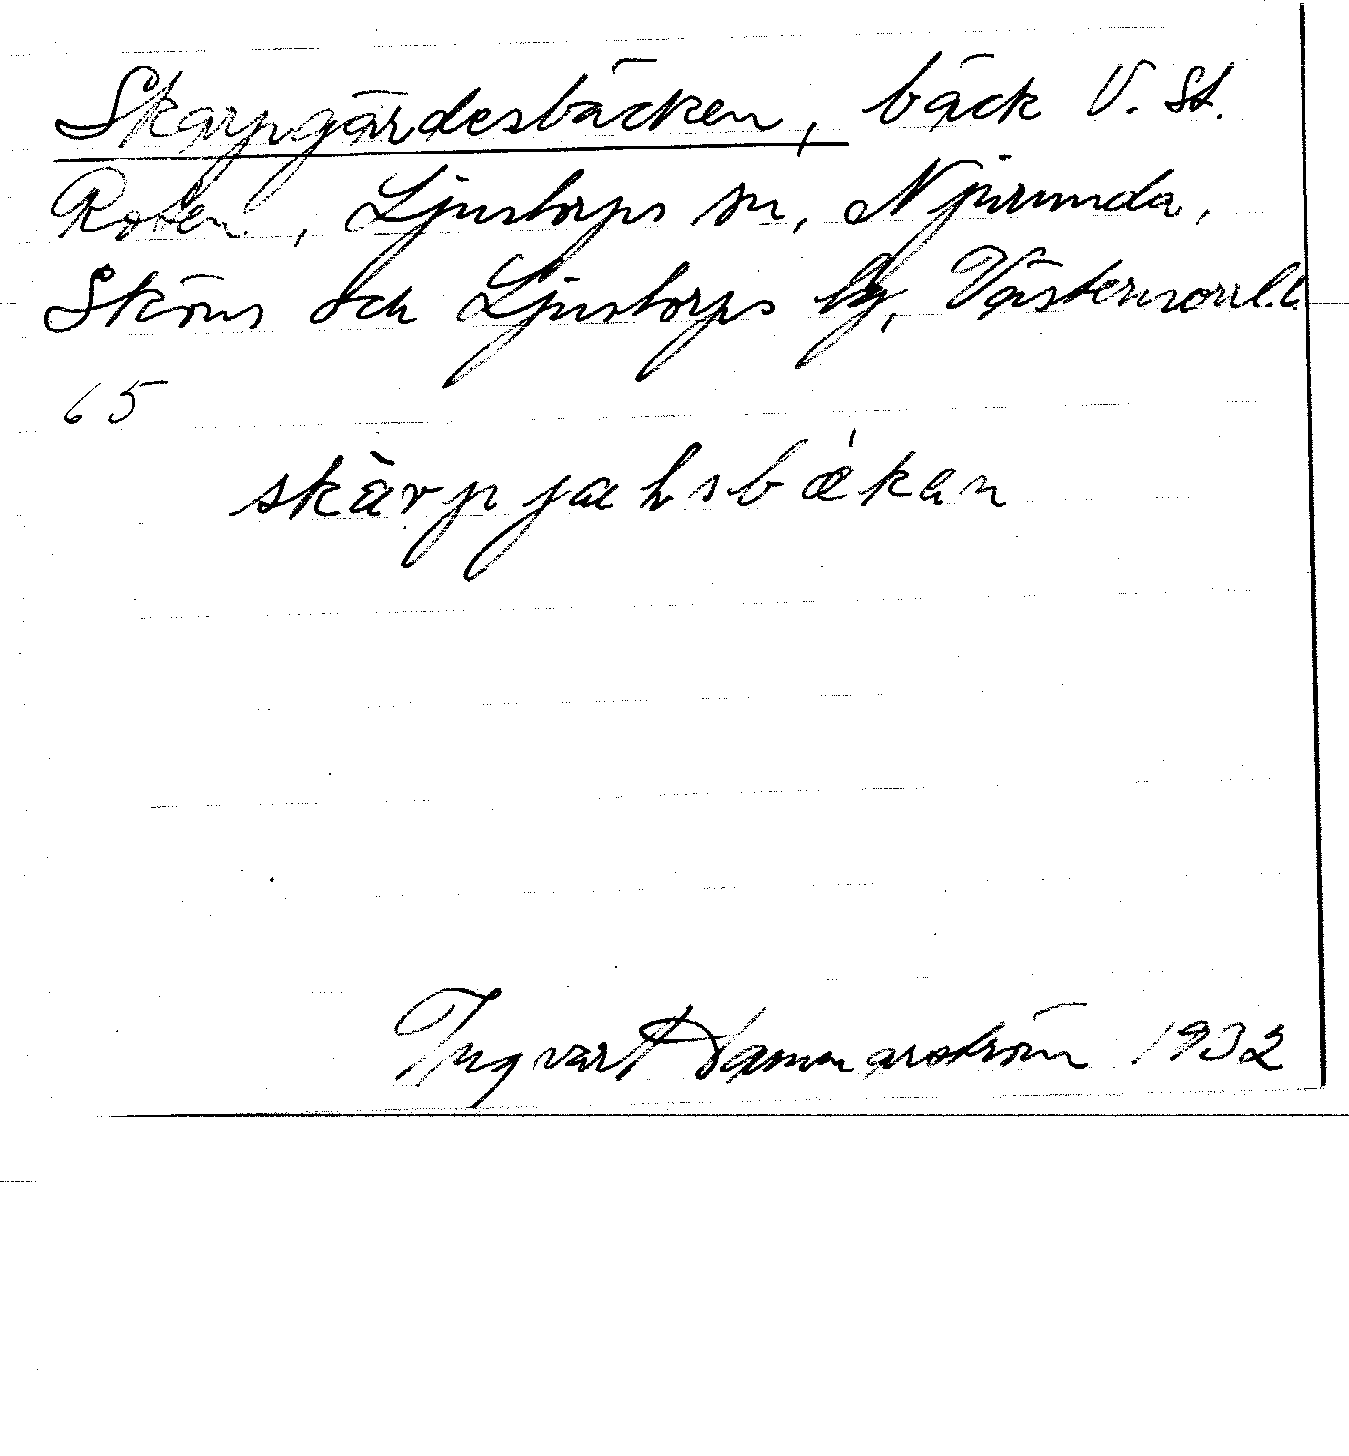 Skarpgärdesbäcken, bäck V. St.
Roten, Ljustorps sn, Njurunda,
Sköns och Ljustorps tg, Västernorrl.l.
65
skàrpjahsbǽkan
Ingvart Hammarström 1932